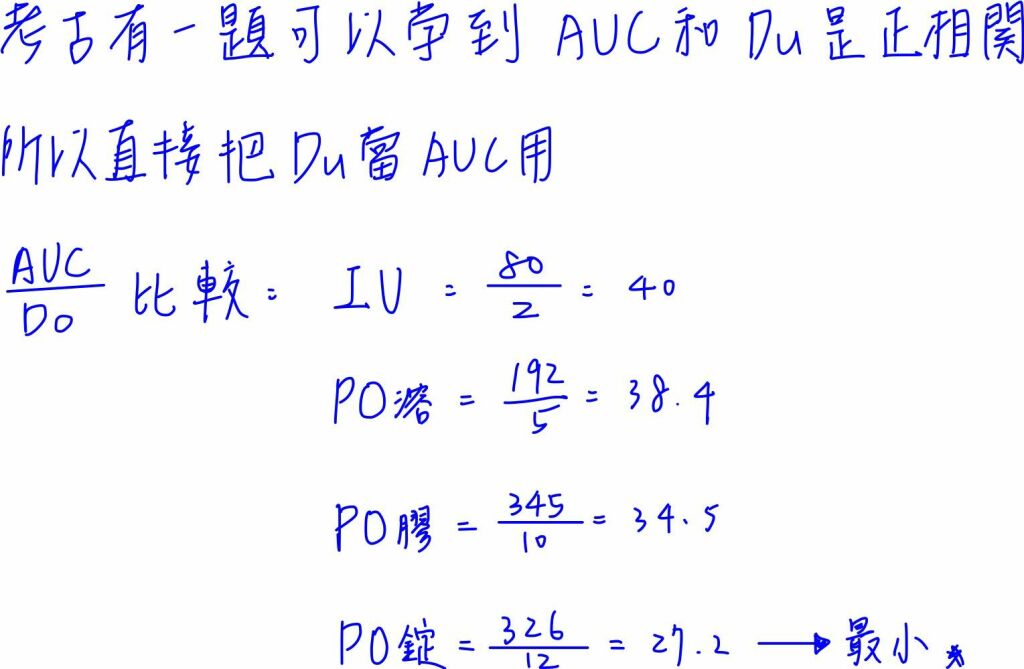 考古有一題可以学到 AUC和 Du是正相關
所以直接把Du當AUC用
AUC/Do 比較： IU = 80/2 = 40
PO溶 = 192/5 = 38.4
PO膠 = 345/10 = 34.5
PO錠 = 326/12 = 27.2 → 最小